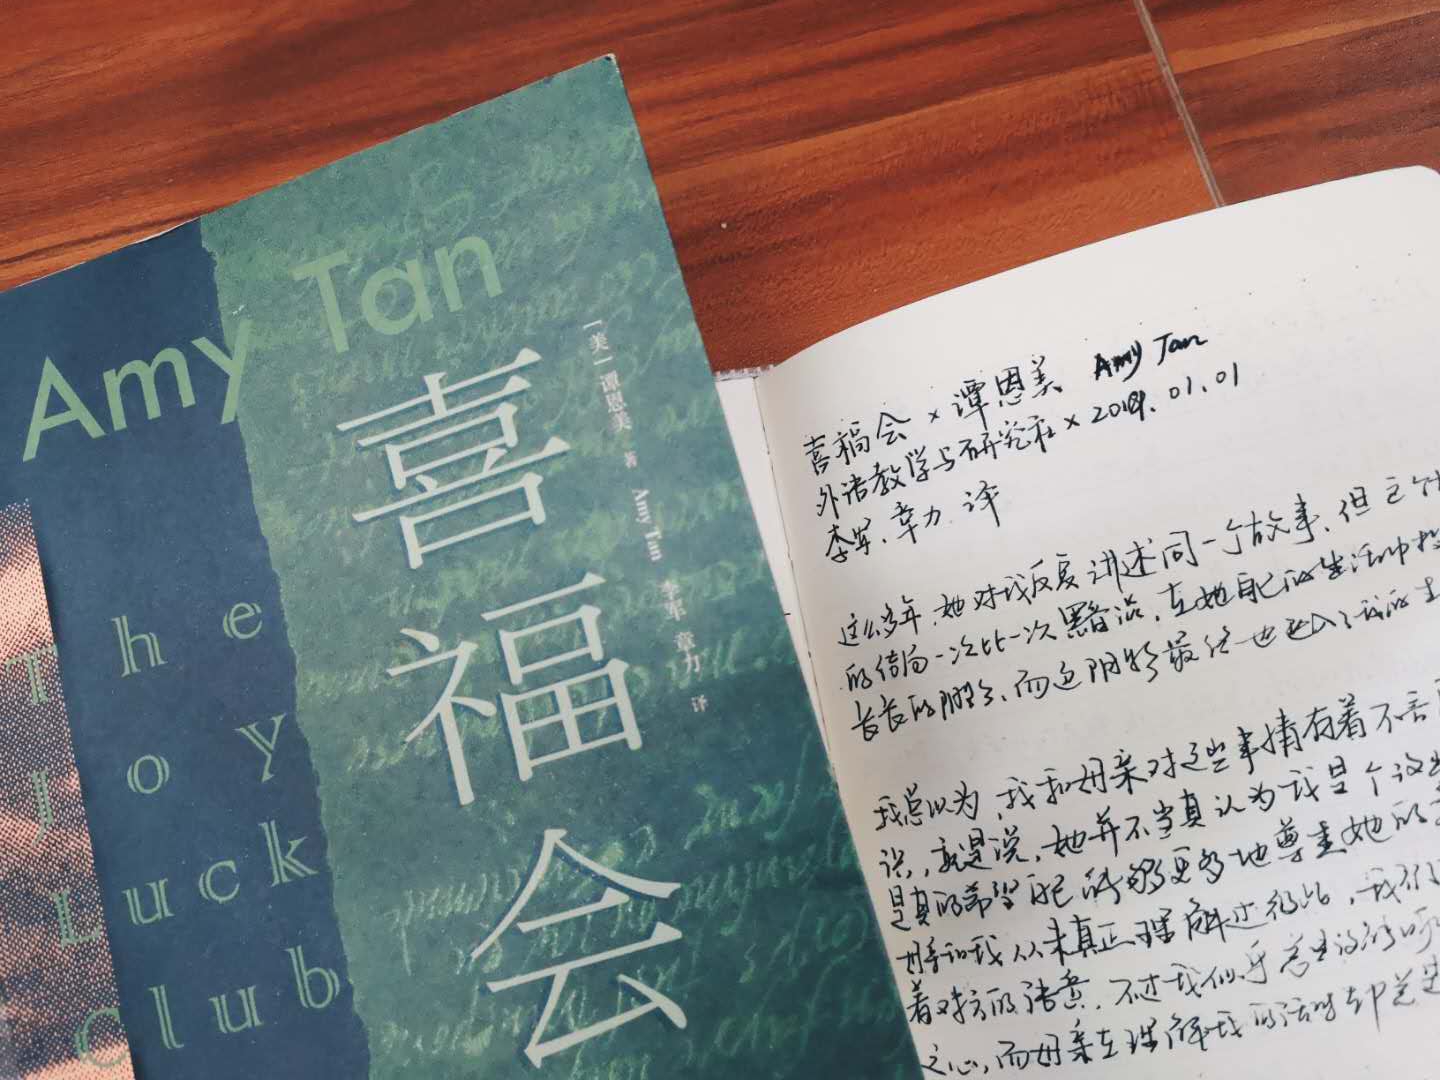 Amy Tan
喜福会
[美]谭恩美 著
Amy Tan
李军 章力 译
The
Joy
Luck
Club
喜福会 × 谭恩美 Amy Tan
外语教学与研究社 × 2018.01.01
李军、章力 译
这么多年,她对我反复讲述同一个故事,但它
的结局一次比一次黑暗,在她自己的生活中投
长长的阴影,而这阴影最终也进入了我的生
我总以为,我和母亲对这些事情有着不言
识,就是说,她并不当真认为我是个
是真的希望自己能够更多地尊重她的
母亲和我从未真正理解过彼此,我们
着对方的语意,不过我似乎总是
之心,而母亲在理解我的话时却总是